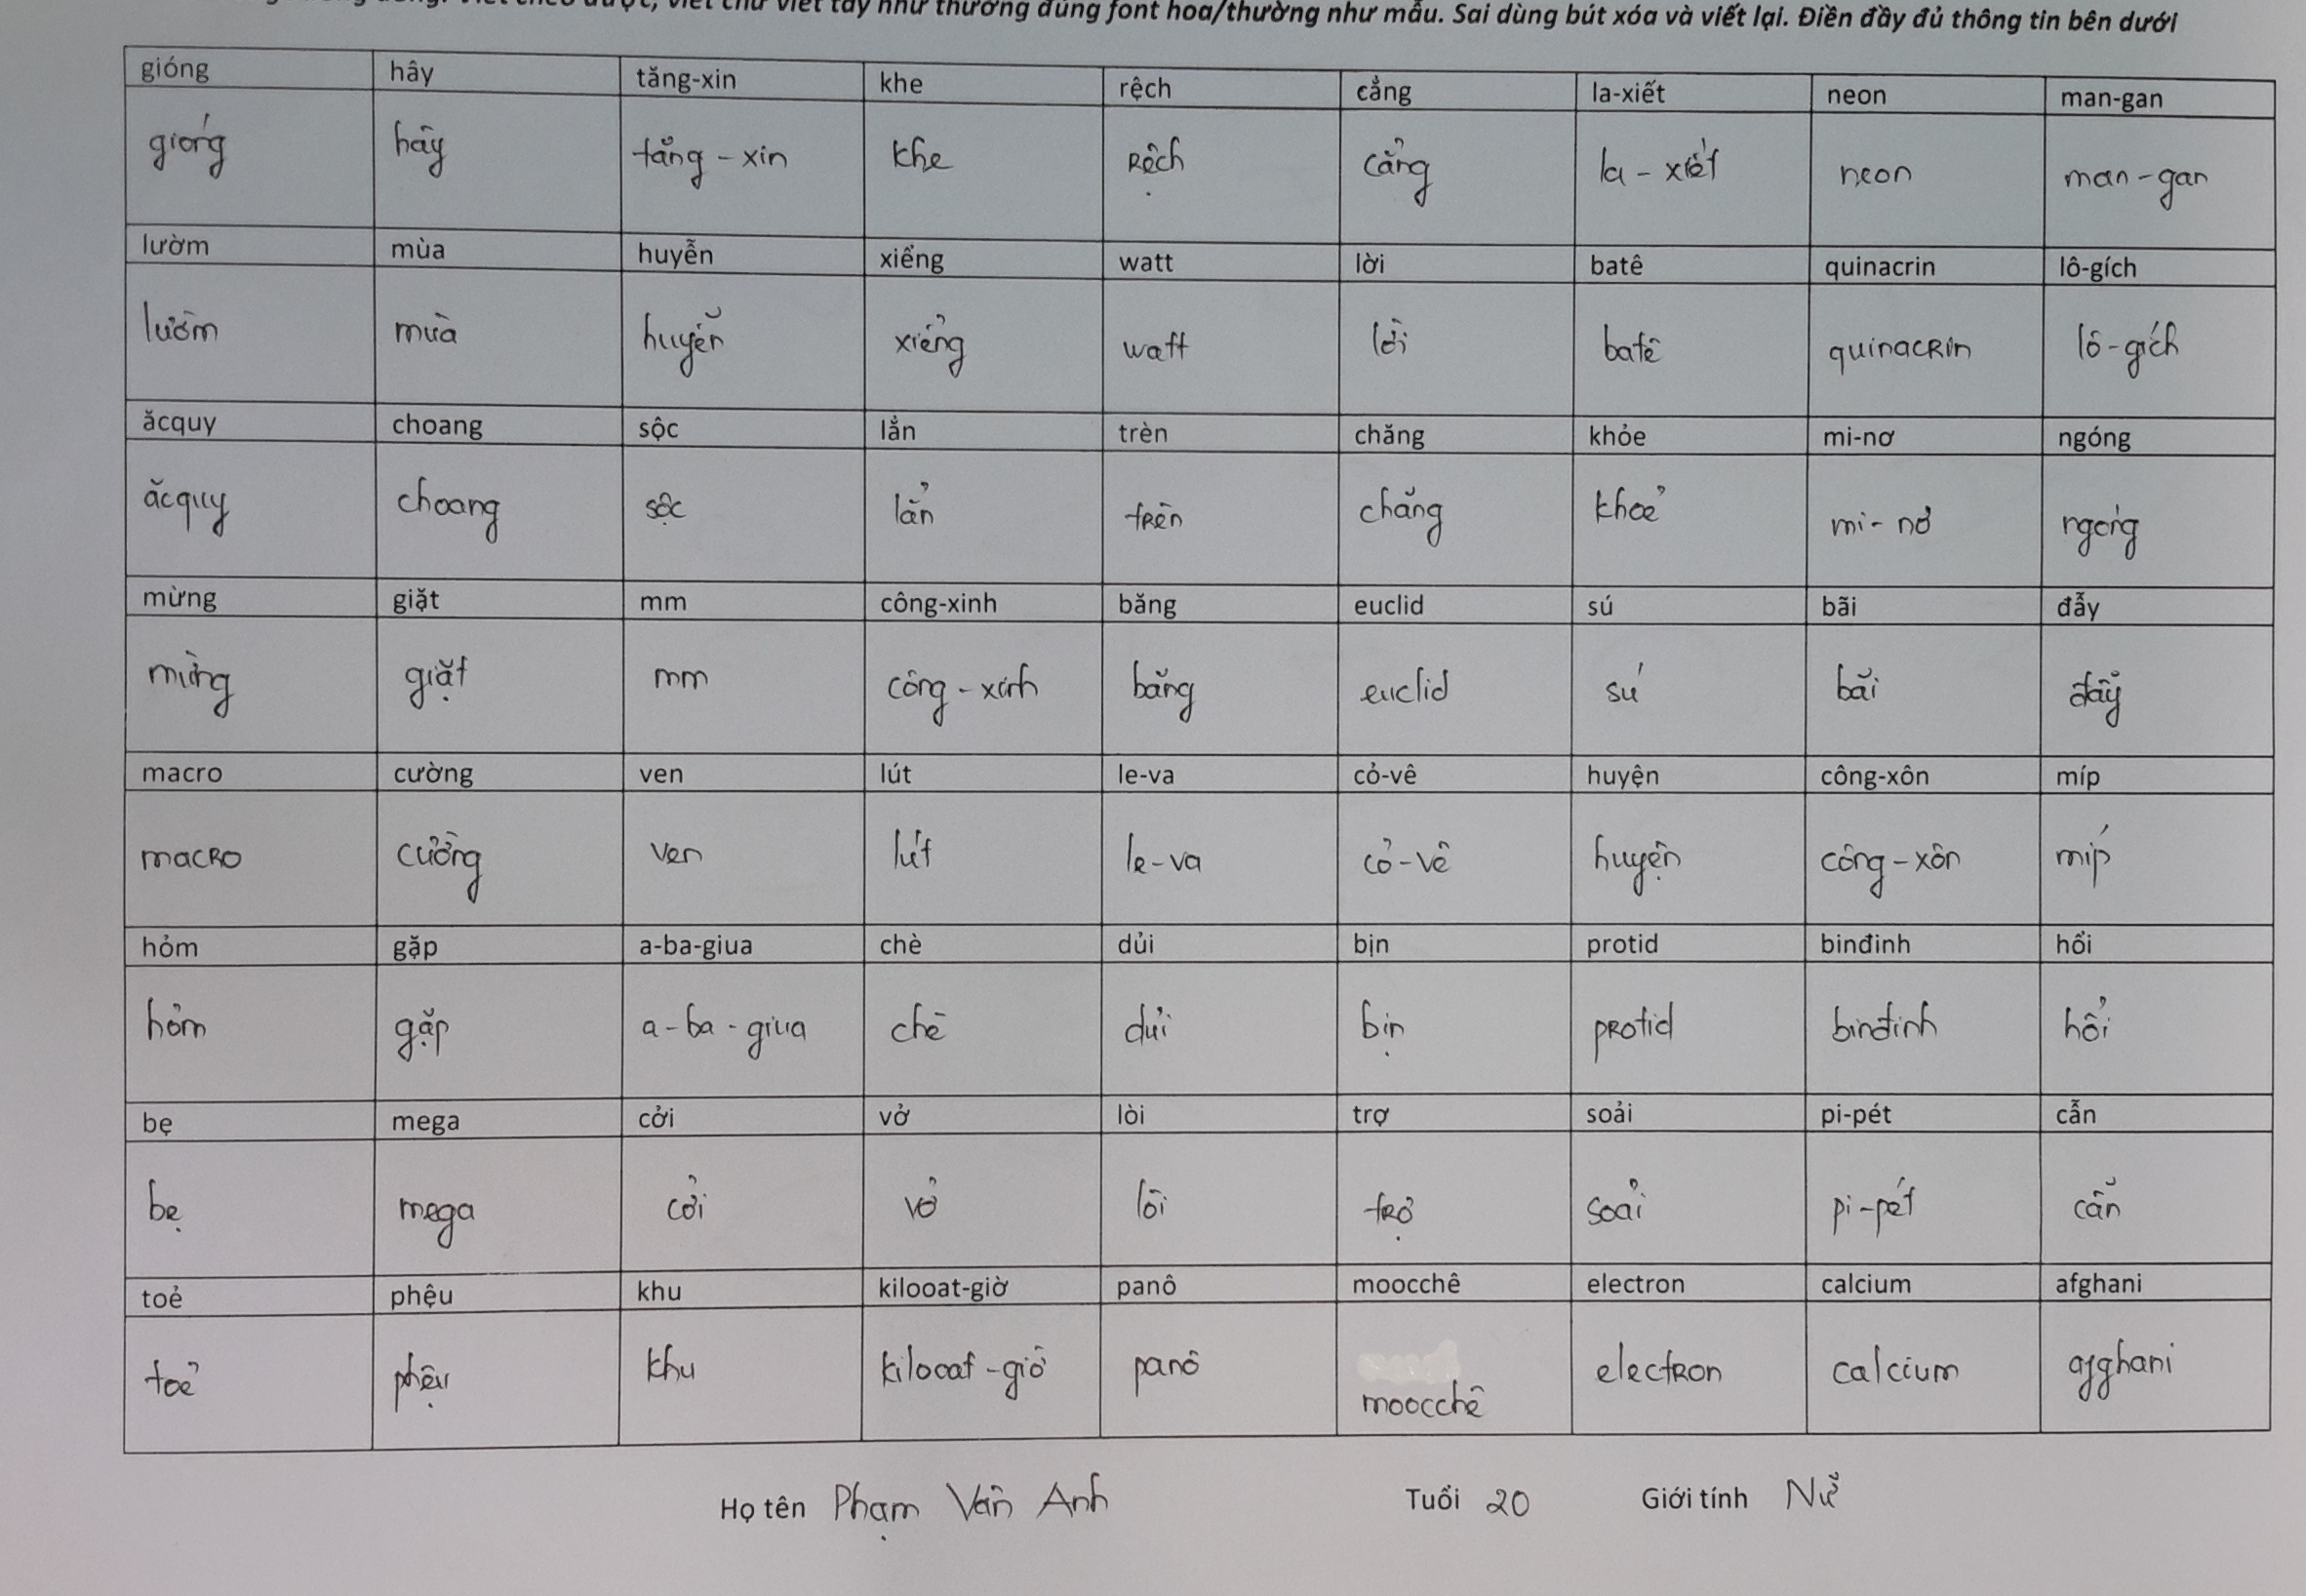 viết chữ viết tay như thường đúng font hoa/thường như mẫu. Sai dùng bút xóa và viết lại. Điền đầy đủ thông tin bên dưới
gióng hây tăng-xin khe rệch cẳng la-xiết neon man-gan
gióng hây tăng-xin khe rệch cẳng la-xiết neon man-gan
lườm mùa huyễn xiểng watt lời batê quinacrin lô-gích
lườm mùa huyễn xiểng watt lời batê quinacrin lô-gích
ăcquy choang sộc lẳn trèn chăng khỏe mi-nơ ngóng
ăcquy choang sộc lẳn trèn chăng khoẻ mi-nơ ngóng
mừng giặt mm công-xinh băng euclid sú bãi đẫy
mừng giặt mm công-xinh băng euclid sú bãi đẫy
macro cường ven lút le-va cỏ-vê huyện công-xôn míp
macro cường ven lút le-va cỏ-vê huyện công-xôn míp
hỏm gặp a-ba-giua chè dủi bịn protid binđinh hổi
hỏm gặp a-ba-giua chè dủi bịn protid binđinh hổi
bẹ mega cởi vở lòi trợ soải pi-pét cẫn
bẹ mega cởi vở lòi trợ soải pi-pét cẫn
toẻ phệu khu kilooat-giờ panô moocchê electron calcium afghani
toẻ phệu khu kilooat-giờ panô moocchê electron calcium afghani
Họ tên Phạm Vân Anh Tuổi 20 Giới tính Nữ